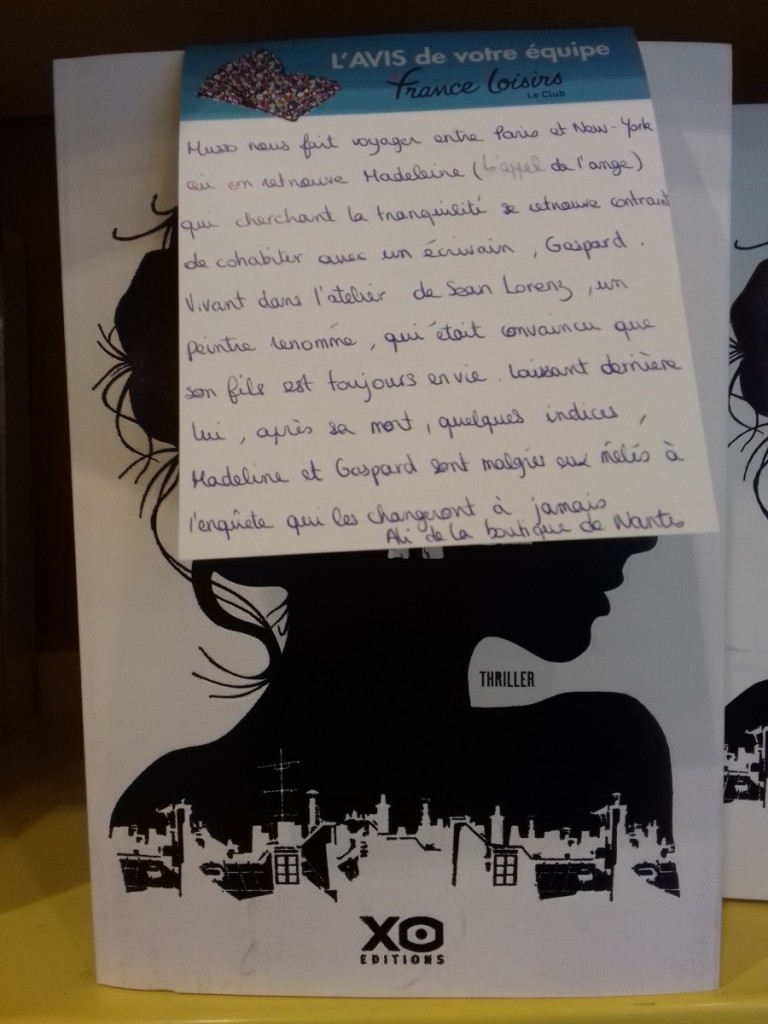 L'AVIS de votre équipe
France Loisirs
Le Club
Musso nous fait voyager entre Paris et New-York
où on retrouve Madeleine (L'appel de l'ange)
qui cherchant la tranquilité se retrouve contraint
de cohabiter avec un écrivain, Gaspard.
Vivant dans l'atelier de Sean Lorenz, un
peintre renommé, qui était convaincu que
son fils est toujours en vie. Laissant dernière
lui, après sa mort, quelques indices,
Madeline et Gaspard sont malgrés eux mêlés à
l'enquête qui les changeront à jamais
Ali de la boutique de Nantes
THRILLER
XO
EDITIONS